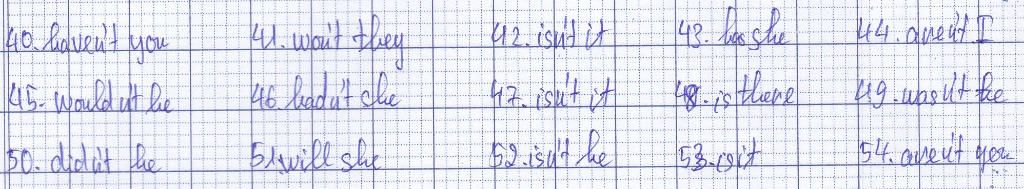 40. haven't you 41. won't they 42. isn't it 43. has she 44. aren't I
45. wouldn't he 46. hadn't she 47. isn't it 48. is there 49. wasn't he
50. didn't he 51. will she 52. isn't he 53. is it 54. aren't you